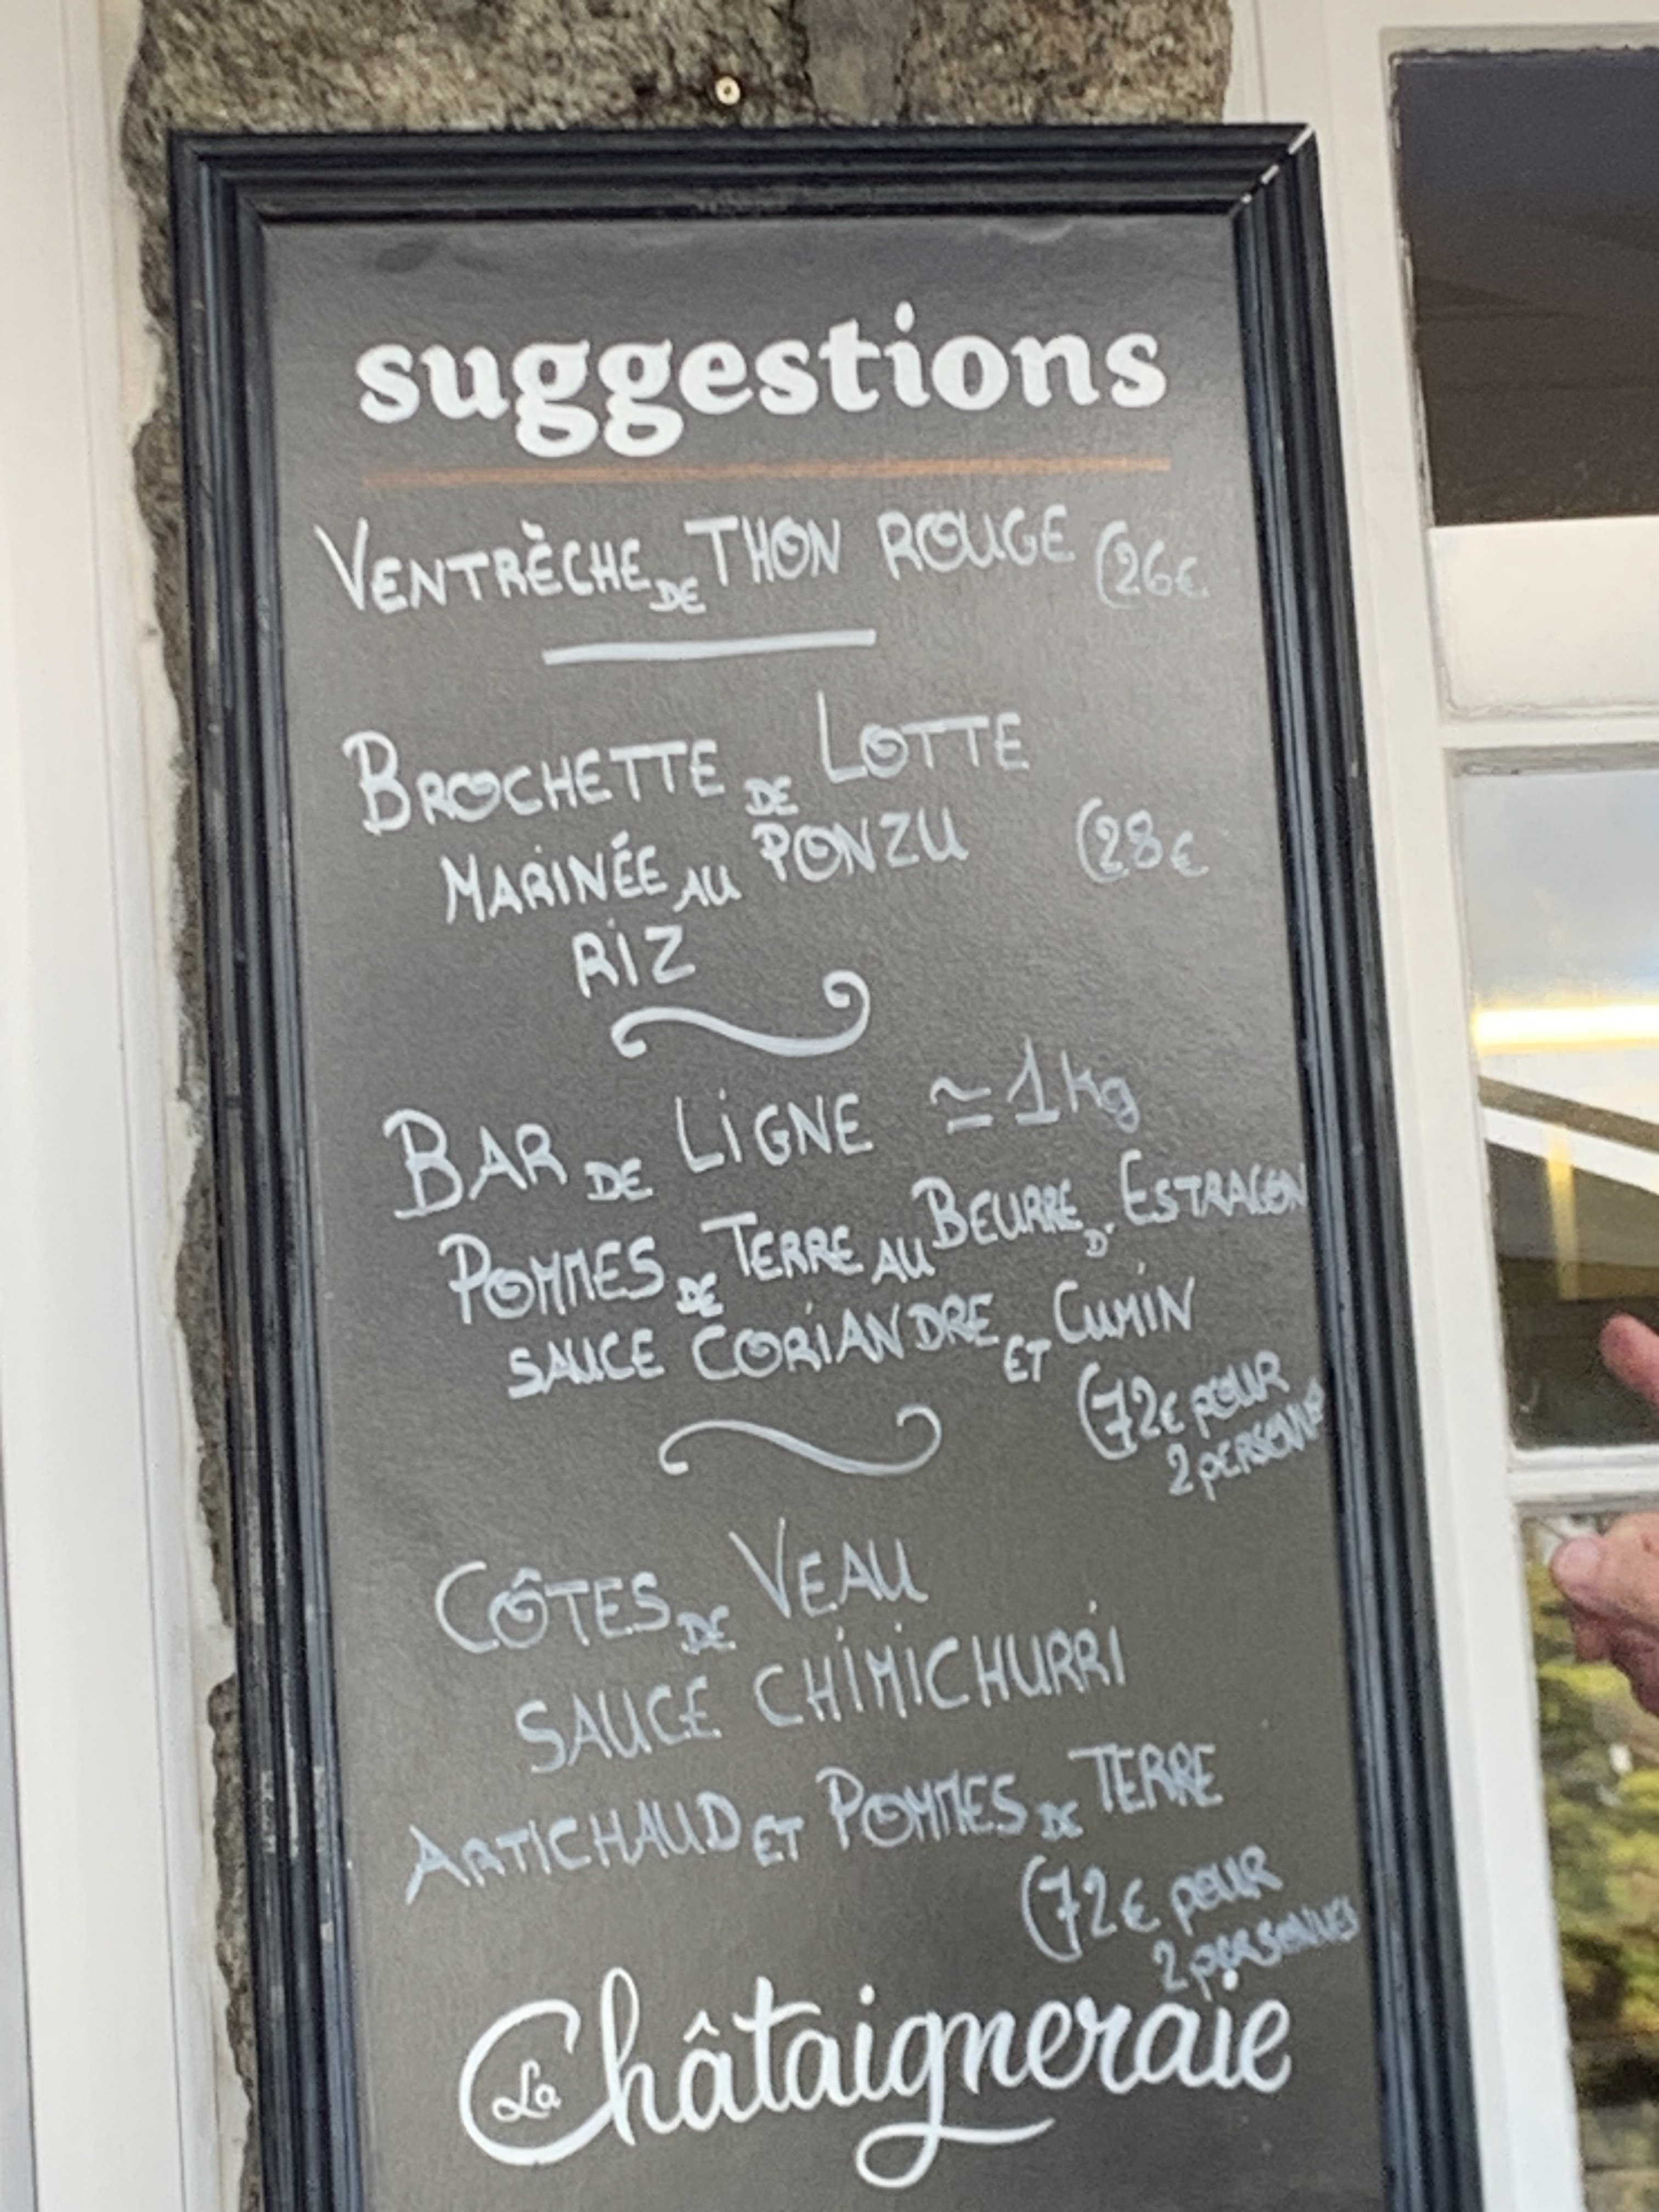 suggestions
VENTRÈCHE DE THON ROUGE (26€
BROCHETTE DE LOTTE
MARINÉE AU PONZU (28€
RIZ
BAR DE LIGNE ≃ 1kg
POMMES DE TERRE AU BEURRE D'ESTRAGON
SAUCE CORIANDRE ET CUMIN
(72€ POUR
2 PERSONNES
CÔTES DE VEAU
SAUCE CHIMICHURRI
ARTICHAUD ET POMMES DE TERRE
(72€ POUR
2 PERSONNES
La Châtaigneraie